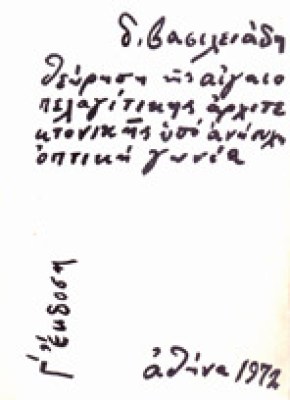 δ. βασιλειάδη
θεώρηση τῆς αἰγαιο
πελαγίτικης ἀρχιτε
κτονικῆς ὑπό ἀνήσυχη
ὀπτική γωνία
Γ΄ ἔκδοση
ἀθήνα 1972